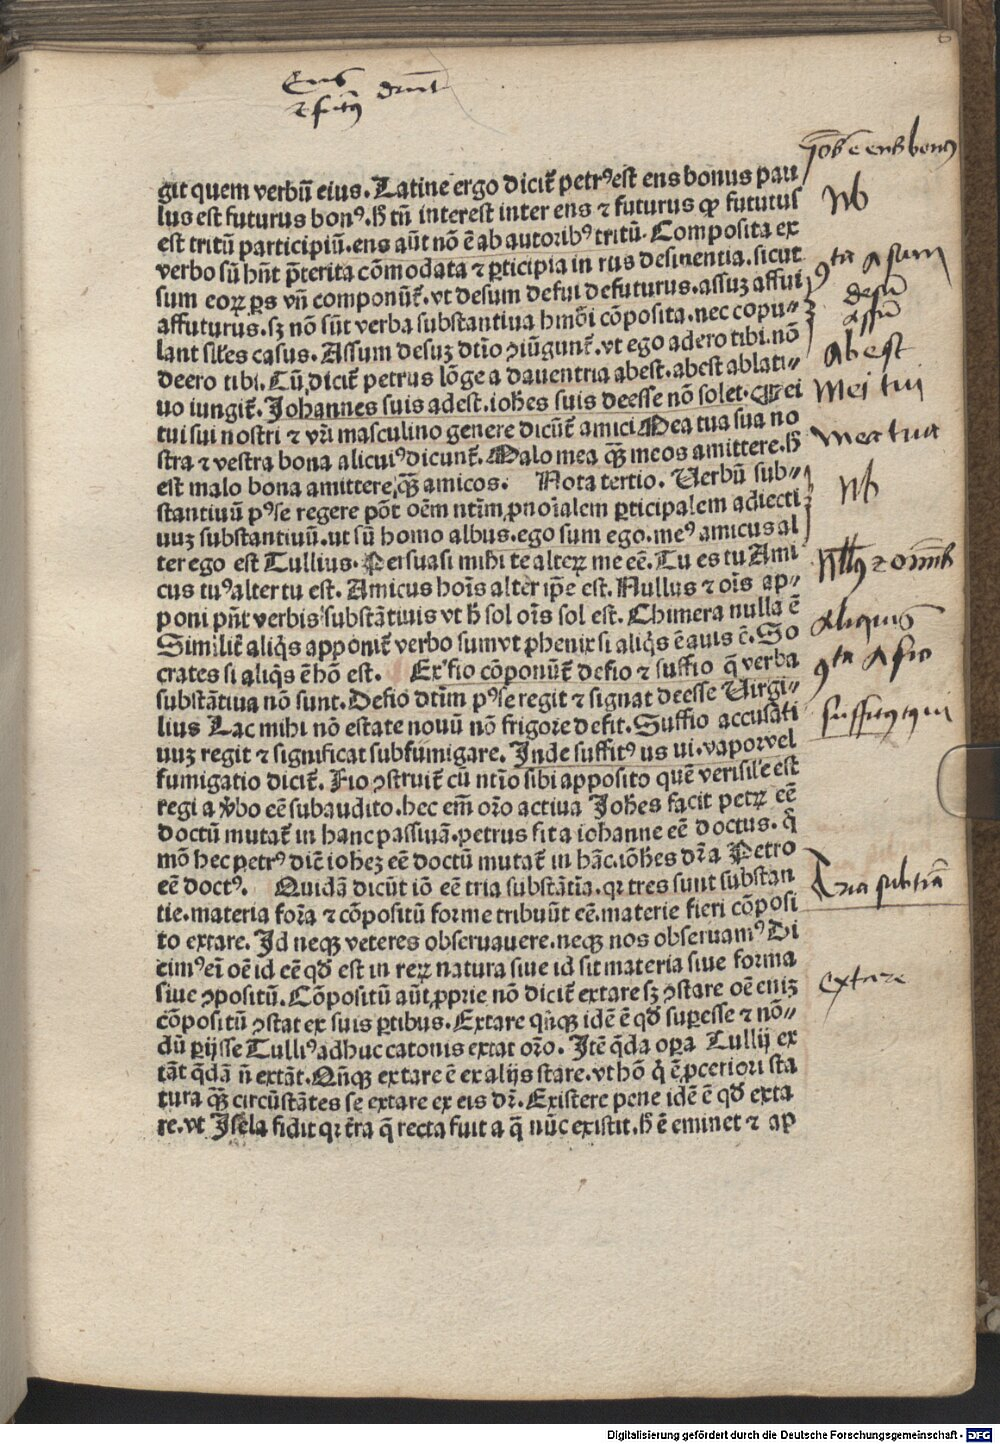 Ens
⁊ futꝰ drnt
git quem verbū eius. Latine ergo dicit᷒ petrꝰ est ens bonus pau
lus est futurus bonꝰ. h̄ tn̄ interest inter ens ⁊ futurus ꝙ fututus
est tritū participiū. ens aūt nō ē ab autoribꝰ tritū. Composita ex
verbo sū hn̄t p̄terita cōmodata ⁊ ꝑticipia in rus desinentia. sicut
sum eoꝝ ꝑs vn̄ componūt᷒. vt desum defui defuturus. assuꝫ affui
affuturus. sꝫ nō sūt verba substantiua hmōi cōposita. nec copu⸗
lant siles casus. Assum desuꝫ dtīo ꝯiūgunt᷒. vt ego adero tibi. nō
deero tibi. Cū dicit᷒ petrus lōge a dauentria abest. abest ablati⸗
uo iungit᷒. Johannes suis adest. iohēs suis deesse nō solet. Mei
tui sui nostri ⁊ vr̄i masculino genere dicūt᷒ amici Mea tua sua no
stra ⁊ vestra bona alicuiꝰ dicunt᷒. Malo mea qꝫ̄ meos amittere. h̄
est malo bona amittere qꝫ̄ amicos. Nota tertio. Verbū sub⸗
stantiuū pꝰse regere pōt oēm ntīm ꝓnoīalem ꝑticipalem adiecti
uuꝫ substantiuū. ut sū homo albus. ego sum ego. meꝰ amicus al
ter ego est Tullius. Persuasi mihi te alteꝝ me eē. Tu es tu Ami
cus tuꝰ alter tu est. Amicus hoīs alter ip̄e est. Nullus ⁊ oīs ap⸗
poni pn̄t verbis substātiuis vt h̄ sol oīs sol est. Chimera nulla ē
Similit᷒ aliq̄s apponit᷒ verbo sum vt phenix si aliq̄s ē auis ē. So
crates si aliq̄s ē hō est. Ex fio cōponūt᷒ defio ⁊ suffio q̄ verba
substātiua nō sunt. Defio dtīm pꝰse regit ⁊ signat deesse Virgi⸗
lius Lac mihi nō estate nouū nō frigore defit. Suffio accusati
uuꝫ regit ⁊ significat subfumigare. Inde suffitꝰ us ui. vapor vel
fumigatio dicit᷒. Fio ꝯstruit᷒ cū ntīo sibi apposito quē verisile est
regi a v̄bo eē subaudito. hec em̄ orō actiua Johēs facit petꝝ eē
doctū mutat᷒ in hanc passiuā. petrus fit a iohanne eē doctus. q̄
mō hec petrꝰ dic̄ iohēꝫ eē doctū mutat᷒ in hāc. iōhēs dr̄ a Petro
eē doctꝰ. Quidā dicūt iō eē tria substātīa. qꝛ tres sunt substan
tie. materia forā ⁊ cōpositū forme tribuūt eē. materie fieri cōposi
to extare. Id neqꝫ veteres obseruauere. neqꝫ nos obseruamꝰ Di
cimꝰ ei oē id eē qd̄ est in reꝝ natura siue id sit materia siue forma
siue ꝯpositū. Cōpositū aūt ꝓprie nō dicit᷒ extare sꝫ ꝯstare oē eniꝫ
cōpositū ꝯstat ex suis ꝑtibus. Extare qn̄qꝫ idē ē qd̄ suꝑesse ⁊ nō⸗
dū ꝑijsse Tulliꝰ adhuc catonis extat orō. Itē q̄da oꝑa Lullij ex
tāt q̄dā n̄ extāt. Qn̄qꝫ extare ē ex alijs stare. vt hō q̄ ē ꝓceriori sta
tura qꝫ̄ circūstātes se extare ex eis dr̄. Existere pene idē ē qd̄ exta
re. vt Isela fidit qꝛ tr̄a q̄ recta fuit a q̄ nūc existit. h̄ ē eminet ⁊ ap
Job̄ e ens bonꝰ
Nb
ꝯta a sum
desū
assū
Abest
Mei tui
mea tua
Nb
Nllꝰ ⁊ omīs
Aliquis
ꝯta a fio
suffitꝰ tui
Tria subtīa
extare
Digitalisierung gefördert durch die Deutsche Forschungsgemeinschaft - DFG